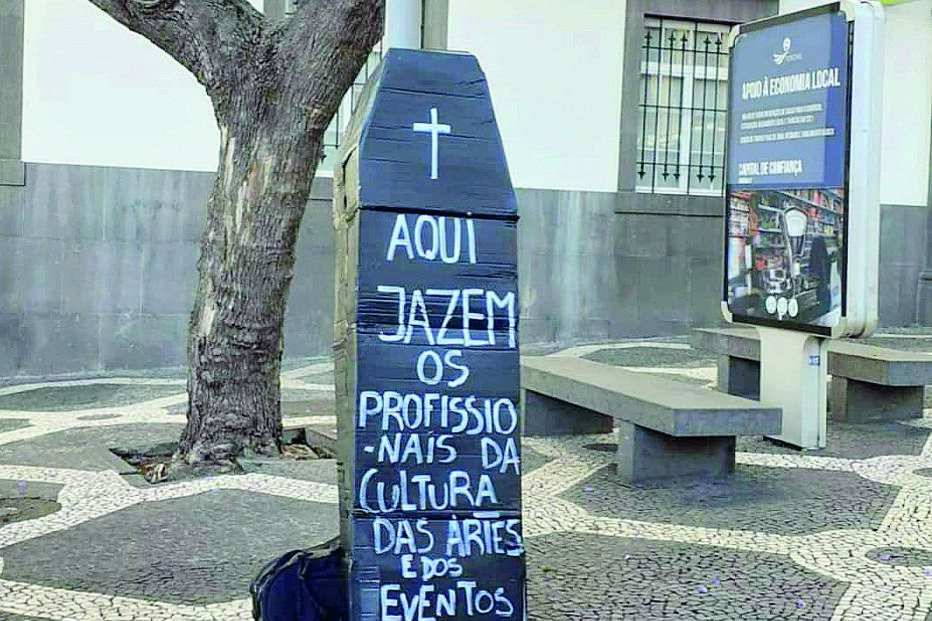 AQUI
JAZEM
OS
PROFISSIO
-NAIS DA
CULTURA
DAS ARTES
E DOS
EVENTOS
APOIO À ECONOMIA LOCAL
CAPITAL DE CONFIANÇA